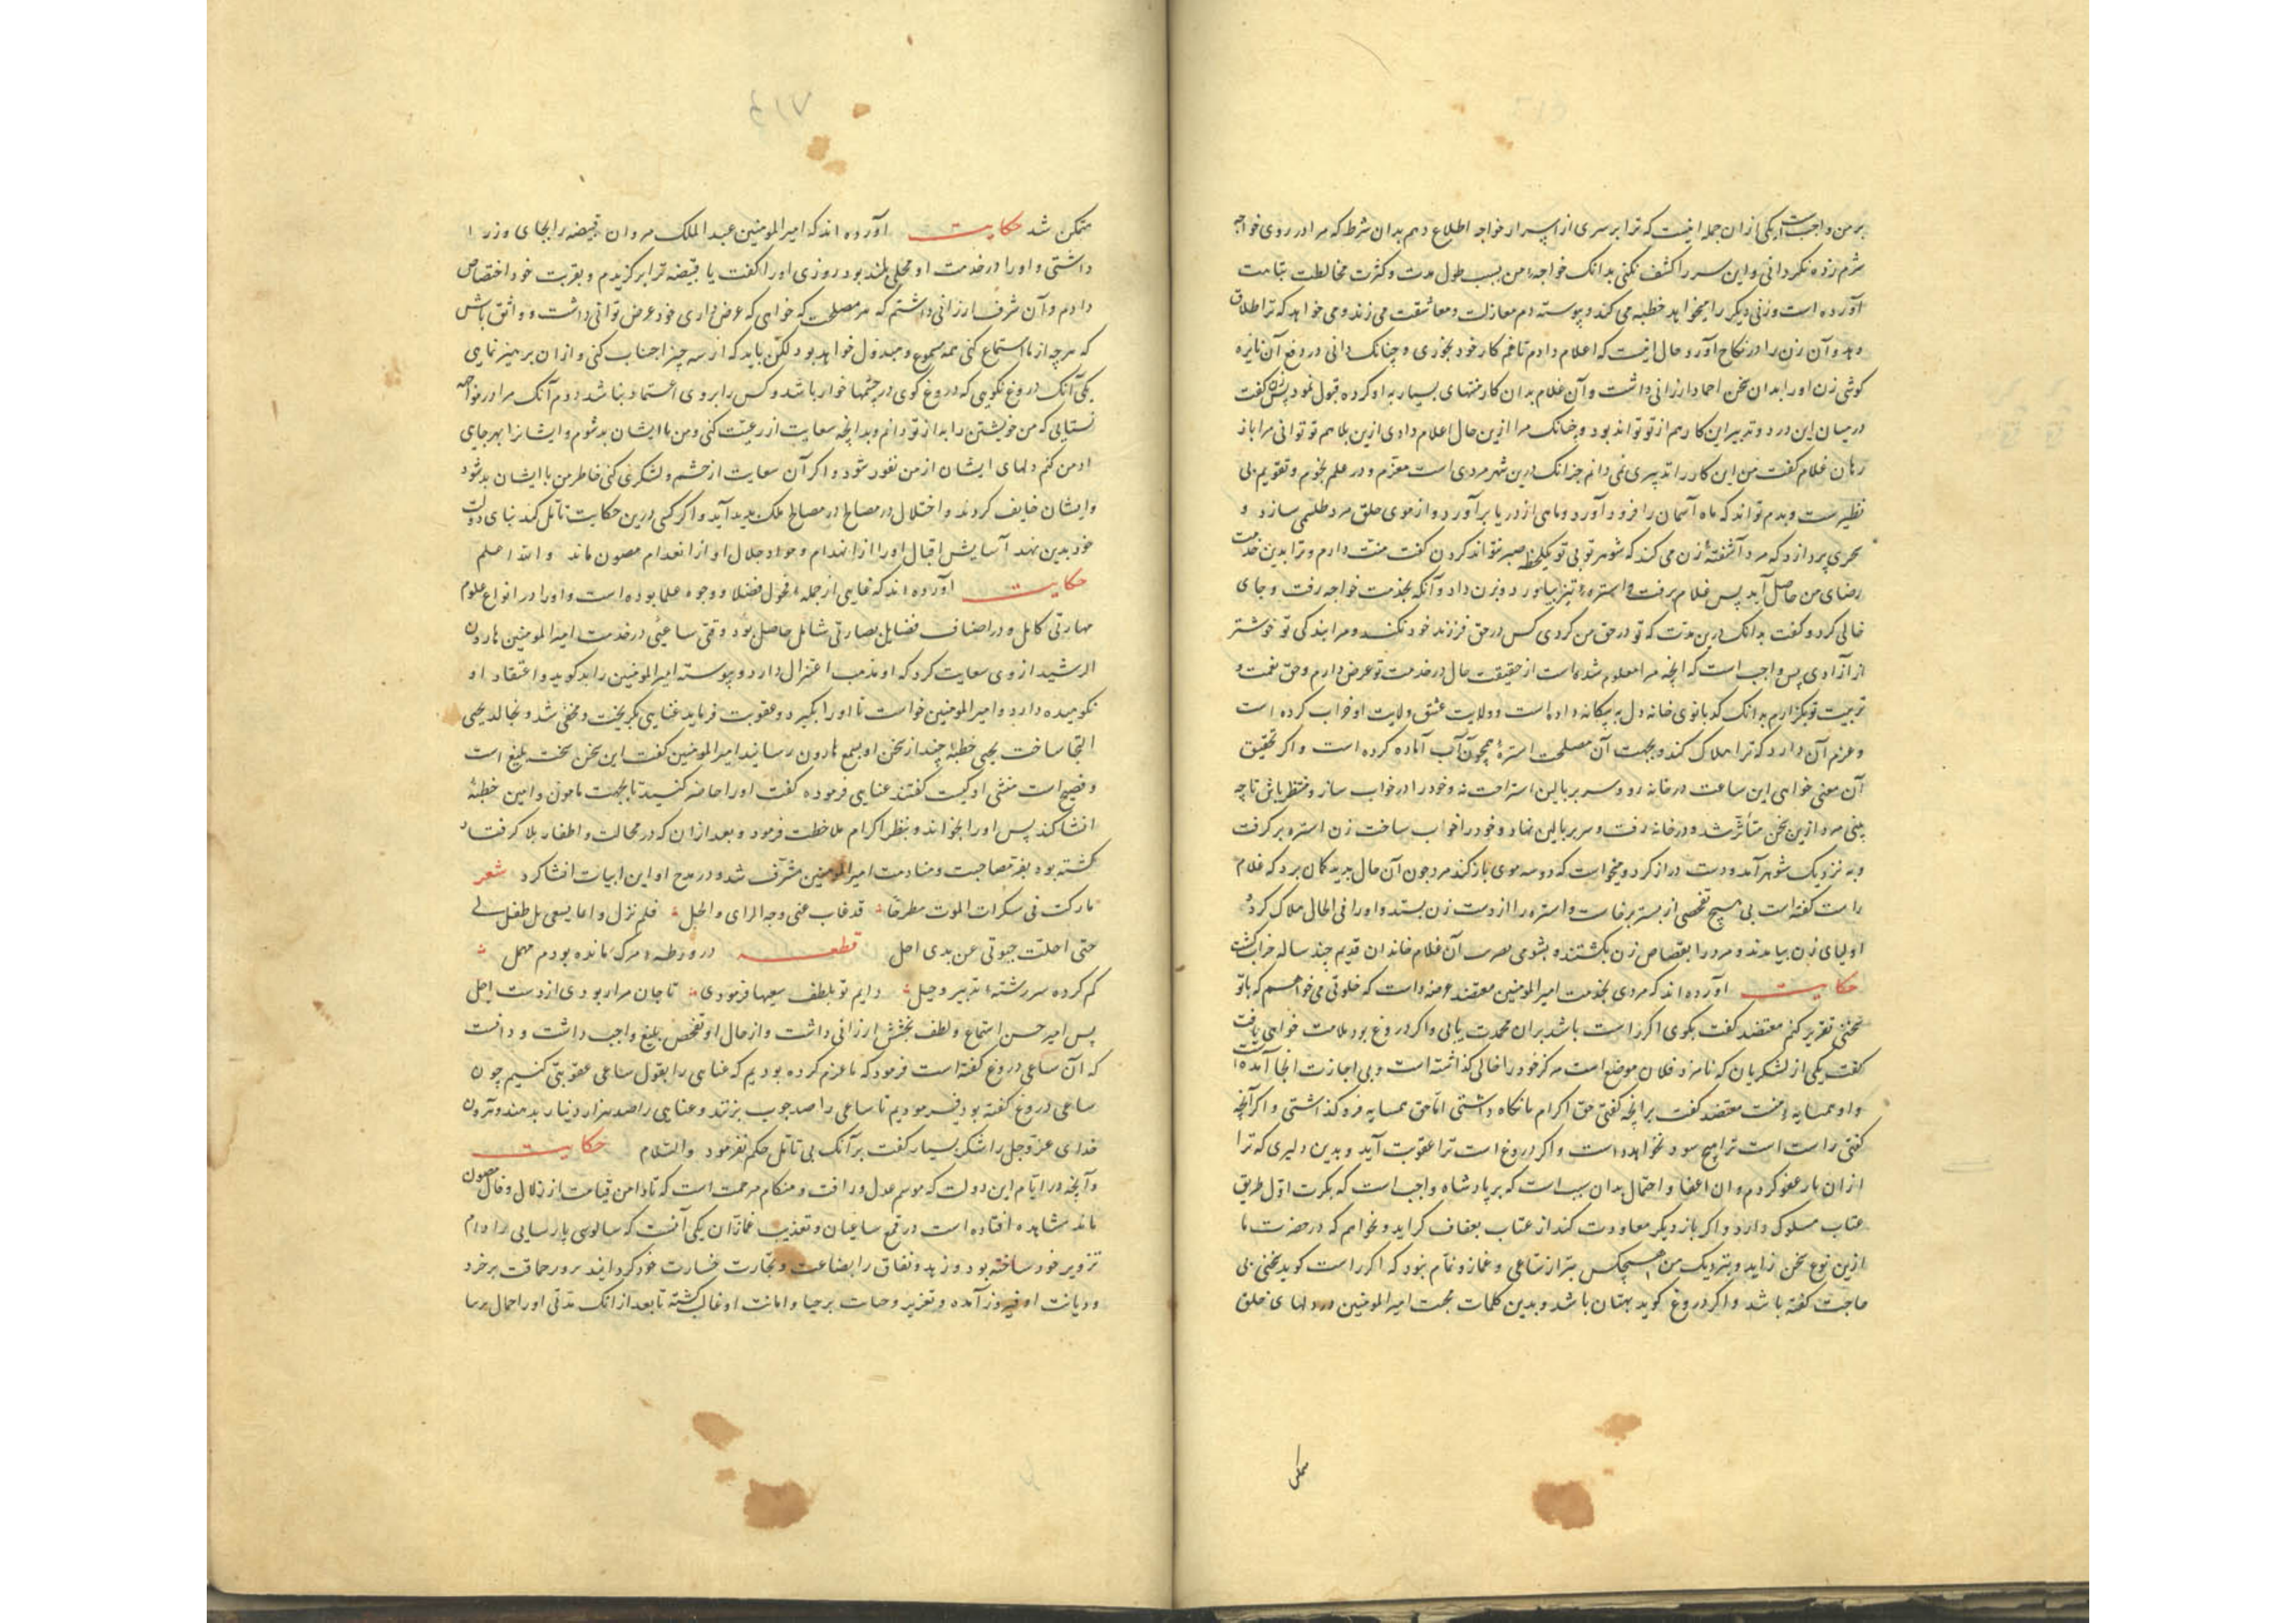 بر من واجبست یکی از ان جمله اینست که ترا بر سری از اسرار خواجه اطلاع دهم بدان شرط که مرا در روی خواجه
شرم زده نکردانی و این سر را کشف نکنی بدانک خواجهٔ من بسبب طول مدت و کثرت مخالطت بتامت
آورده است و زنی دیکر را میخواهد خطبه می کند و پیوسته دم مغازلت و معاشقت می زند و می خواهد که ترا طلاق
دهد و آن زن را در نکاح آورد حال اینست که اعلام دادم تا غم کار خود بخوری و چنانک دانی در دفع آن نایره
کوشی زن او را بدان سخن احماد ارزانی داشت و آن غلام بدان کار منتهای بسیار به او کرده قبول نمود پس زن کفت
درمان این درد و تدبیر این کار هم از تو تواند بود و چنانک مرا ازین حال اعلام دادی ازین بلا هم تو توانی مرا باز
رهان غلام کفت من این کار را تدبیری نمی دانم جز انک درین شهر مردی است معزم و در علم نجوم و تقویم بی
نظیرست و بدم تواند که ماه آسمان را فرود آورد و ماهی از دریا برآورد و از موی حلق مرد طلسمی سازد و
سحری پردازد که مرد آشفتهٔ زن می کند که شوهر تو بی تو یکلحظه صبر نتواند کردن کفت منت دارم و ترا بدین خدمت
رضای من حاصل آید پس غلام برفت و استرهٔ تیز بیاورد و بزن داد و آنکه بخدمت خواجه رفت و جای
خالی کرد و کفت بدانک درین مدت که تو در حق من کردی کس در حق فرزند خود نکند و مرا بندکی تو خوشتر
از آزادی پس واجب است که انچه مرا معلوم شده است از حقیقت حال در خدمت تو عرض دارم و حق نعمت و
تربیت تو بکزارم بدانک کدبانوی خانه دل به بیکانه داده است و ولایت عشق ولایت او خراب کرده است
و عزم آن دارد که ترا هلاک کند و بجهت آن مصلحت استرهٔ همچون آب آماده کرده است و اکر تحقیق
آن معنی خواهی این ساعت در خانه رو و سر بر بالین استراحت نه و خود را در خواب ساز و منتظر باش تا چه
بینی مرد ازین سخن متأثر شد و در خانه رفت و سر بر بالین نهاد و خود را خواب ساخت زن استره بر کرفت
و به نزدیک شوهر آمد و دست دراز کرد و میخواست که دو سه موی باز کند مرد چون آن حال بدید کمان برد که غلام
راست کفته است بی هیچ تفحصی از بستر برخاست و استره را از دست زن بستد و او را فی الحال هلاک کرد
اولیای زن بیامدند و مرد را بقصاص زن بکشتند و بشومی آن غلام خاندان قدیم چند ساله خراب کشت
حکایت آورده اند که مردی بخدمت امیر المومنین معتضد عرضه داشت که خلوتی می خواهم که با تو
سخنی تقریر کنم معتضد کفت بکوی اکر راست باشد بران محمدت یابی و اکر دروغ بود ملامت خواهی یافت
کفت یکی از لشکریان که نامزد فلان موضع است مرکز خود را خالی کذاشته است و بی اجازت انجا آمده است
و او همسایهٔ منست معتضد کفت بر انچه کفتی حق اکرام ما نکاه داشتی اما حق همسایه فرو کذاشتی و اکر آنچه
کفتی راست است ترا هیچ سود نخواهد داشت و اکر دروغ است ترا عقوبت آید و بدین دلیری که ترا
ازان بار عفو کردم و ان اغضا و احتمال بدان سبب است که بر پادشاه واجب است که بکرت اول طریق
عتاب مسلوک دارد و اکر بار دیکر معاودت کند از عتاب بعقاب کراید و نخواهم که در حضرت ما
ازین نوع سخن زاید و بنزدیک من هیچکس بتر از ساعی و غماز و نمام نبود که اکر راست کوید سخنی بی
حاجت کفته باشد و اکر دروغ کوید بهتان باشد و بدین کلمات محبت امیر المومنین در دلهای خلق
متمکن شد حکایت آورده اند که امیر المومنین عبد الملک مروان قبیضه را بجای وزرا
داشتی و او را در خدمت او محلی بلند بود روزی او را کفت یا قبیضه ترا برکزیدم و بقربت خود اختصاص
دادم و آن شرف ارزانی داشتم که هر مصلحت که خواهی که عرض داری خود عرض توانی داشت و واثق باش
که هرچه از ما استماع کنی همه مسموع و مبذول خواهد بود لکن باید که از سه چیز اجتناب کنی و ازان پرهیز نمایی
یکی آنک دروغ نکویی که دروغ کوی در چشمها خوار باشد و کس را بر وی اعتماد نباشد دوم آنک مرا در مواجهه
نستایی که من خویشتن را به از تو دانم و بدانچه سعایت از رعیت کنی و من با ایشان بد شوم و ایشانرا بهر جای
از من کنم دلهای ایشان از من نفور شود و اکر آن سعایت از حشم و لشکری کنی خاطر من با ایشان بد شود
و ایشان خایف کردند و اختلال در مصالح در مصالح ملک پدید آید و اکر کسی درین حکایت تامل کند بنای دولت
خود بدین نهد آسایش اقبال او را از انهدام و مواد جلال او از انعدام مصون ماند و الله اعلم
حکایت آورده اند که عتابی از جملهٔ فحول فضلا و وجوه علما بوده است و او را در انواع علوم
مهارتی کامل و در اصناف فضایل بصارتی شامل حاصل بود وقتی ساعیی در خدمت امیر المومنین هارون
الرشید از وی سعایت کرد که او مذهب اعتزال دارد و پیوسته امیر المومنین را بد کوید و اعتقاد او
نکوهیده دارد و امیر المومنین خواست تا او را بکیرد و عقوبت فرماید عتابی بکریخت و مخفی شد و بخالد یحیی
التجا ساخت یحیی خطبهٔ چند از سخن او بسمع هارون رسانید امیر المومنین کفت این سخن سخت بلیغ است
و فصیح است منشی او کیست کفتند عتابی فرموده کفت او را حاضر کنید تا بجهت مامون و امین خطبهٔ
انشا کند پس او را بخواند و بنظر اکرام ملاحظت فرمود و بعد ازان که در مخالب و اظفار بلا کرفتار
کشته بود بقربت مصاحبت و منادمت امیر المومنین مشرف شد و در مدح او این ابیات انشا کرد شعر
مازلت فی سکرات الموت مطرحا قد غاب عنی وجه الرای و الحیل فلم تزل دائما یسعی بل طفل لی
حتی اختلت حیوتی عن یدی اجل قطعه در ورطهٔ مرک مانده بودم مهمل
کم کرده سر رشتهٔ تدبیر و حیل دایم تو بلطف سعیها فرمودی تا جان مرا ربودی از دست اجل
پس امیر حسن استماع و لطف بخشش ارزانی داشت و از حال او تفحص بلیغ واجب داشت و دانست
که آن ساعی دروغ کفته است فرمود که ما عزم کرده بودیم که عتابی را بقول ساعی عقوبتی کنیم چون
ساعی دروغ کفته بود فرمودیم تا ساعی را صد چوب بزنند و عتابی را صد هزار دینار بدهند و هرون
خدای عز و جل را شکر بسیار کفت بر آنک بی تامل حکم نفرمود والسلام حکایت
و آنچه در ایام این دولت که موسم عدل و رافت و هنکام مرحمت است که تا دامن قیامت از زلال و فال مصون
ماند مشاهده افتاده است در قمع ساعیان و تعذیب غمازان یکی آنست که سالوسی پارسایی را دام
تزویر خود ساخته بود و زهد و نفاق را بضاعت و تجارت خسارت خود کردانید و حماقت بر خرد
و دیانت او فیروز آمده و تعزیر و خیانت بر حیا و امانت او غالب کشته تا بعد از انک مدتی او را